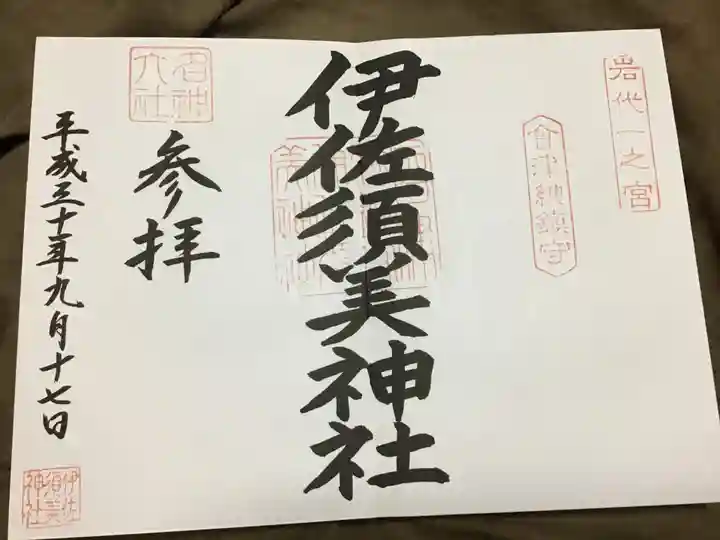 岩代一之宮
會津総鎮守
伊佐須美神社
名神大社
参拝
平成三十年九月十七日
伊佐須美神社